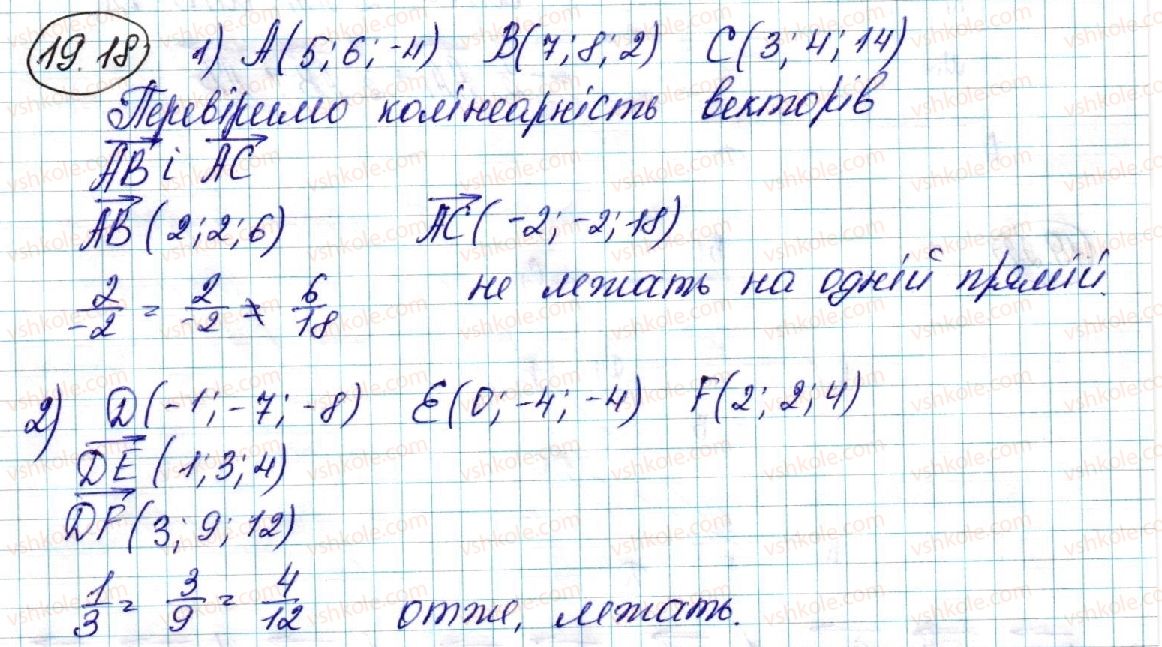 19.18 1) A(5; 6; -4) B(7; 8; 2) C(3; 4; 14)
Перевіримо колінеарність векторів
AB і AC
AB(2; 2; 6) AC(-2; -2; 18)
2/-2 = 2/-2 ≠ 6/18 не лежать на одній прямій.
2) D(-1; -7; -8) E(0; -4; -4) F(2; 2; 4)
DE(1; 3; 4)
DF(3; 9; 12)
1/3 = 3/9 = 4/12 отже, лежать.
vshkole.com